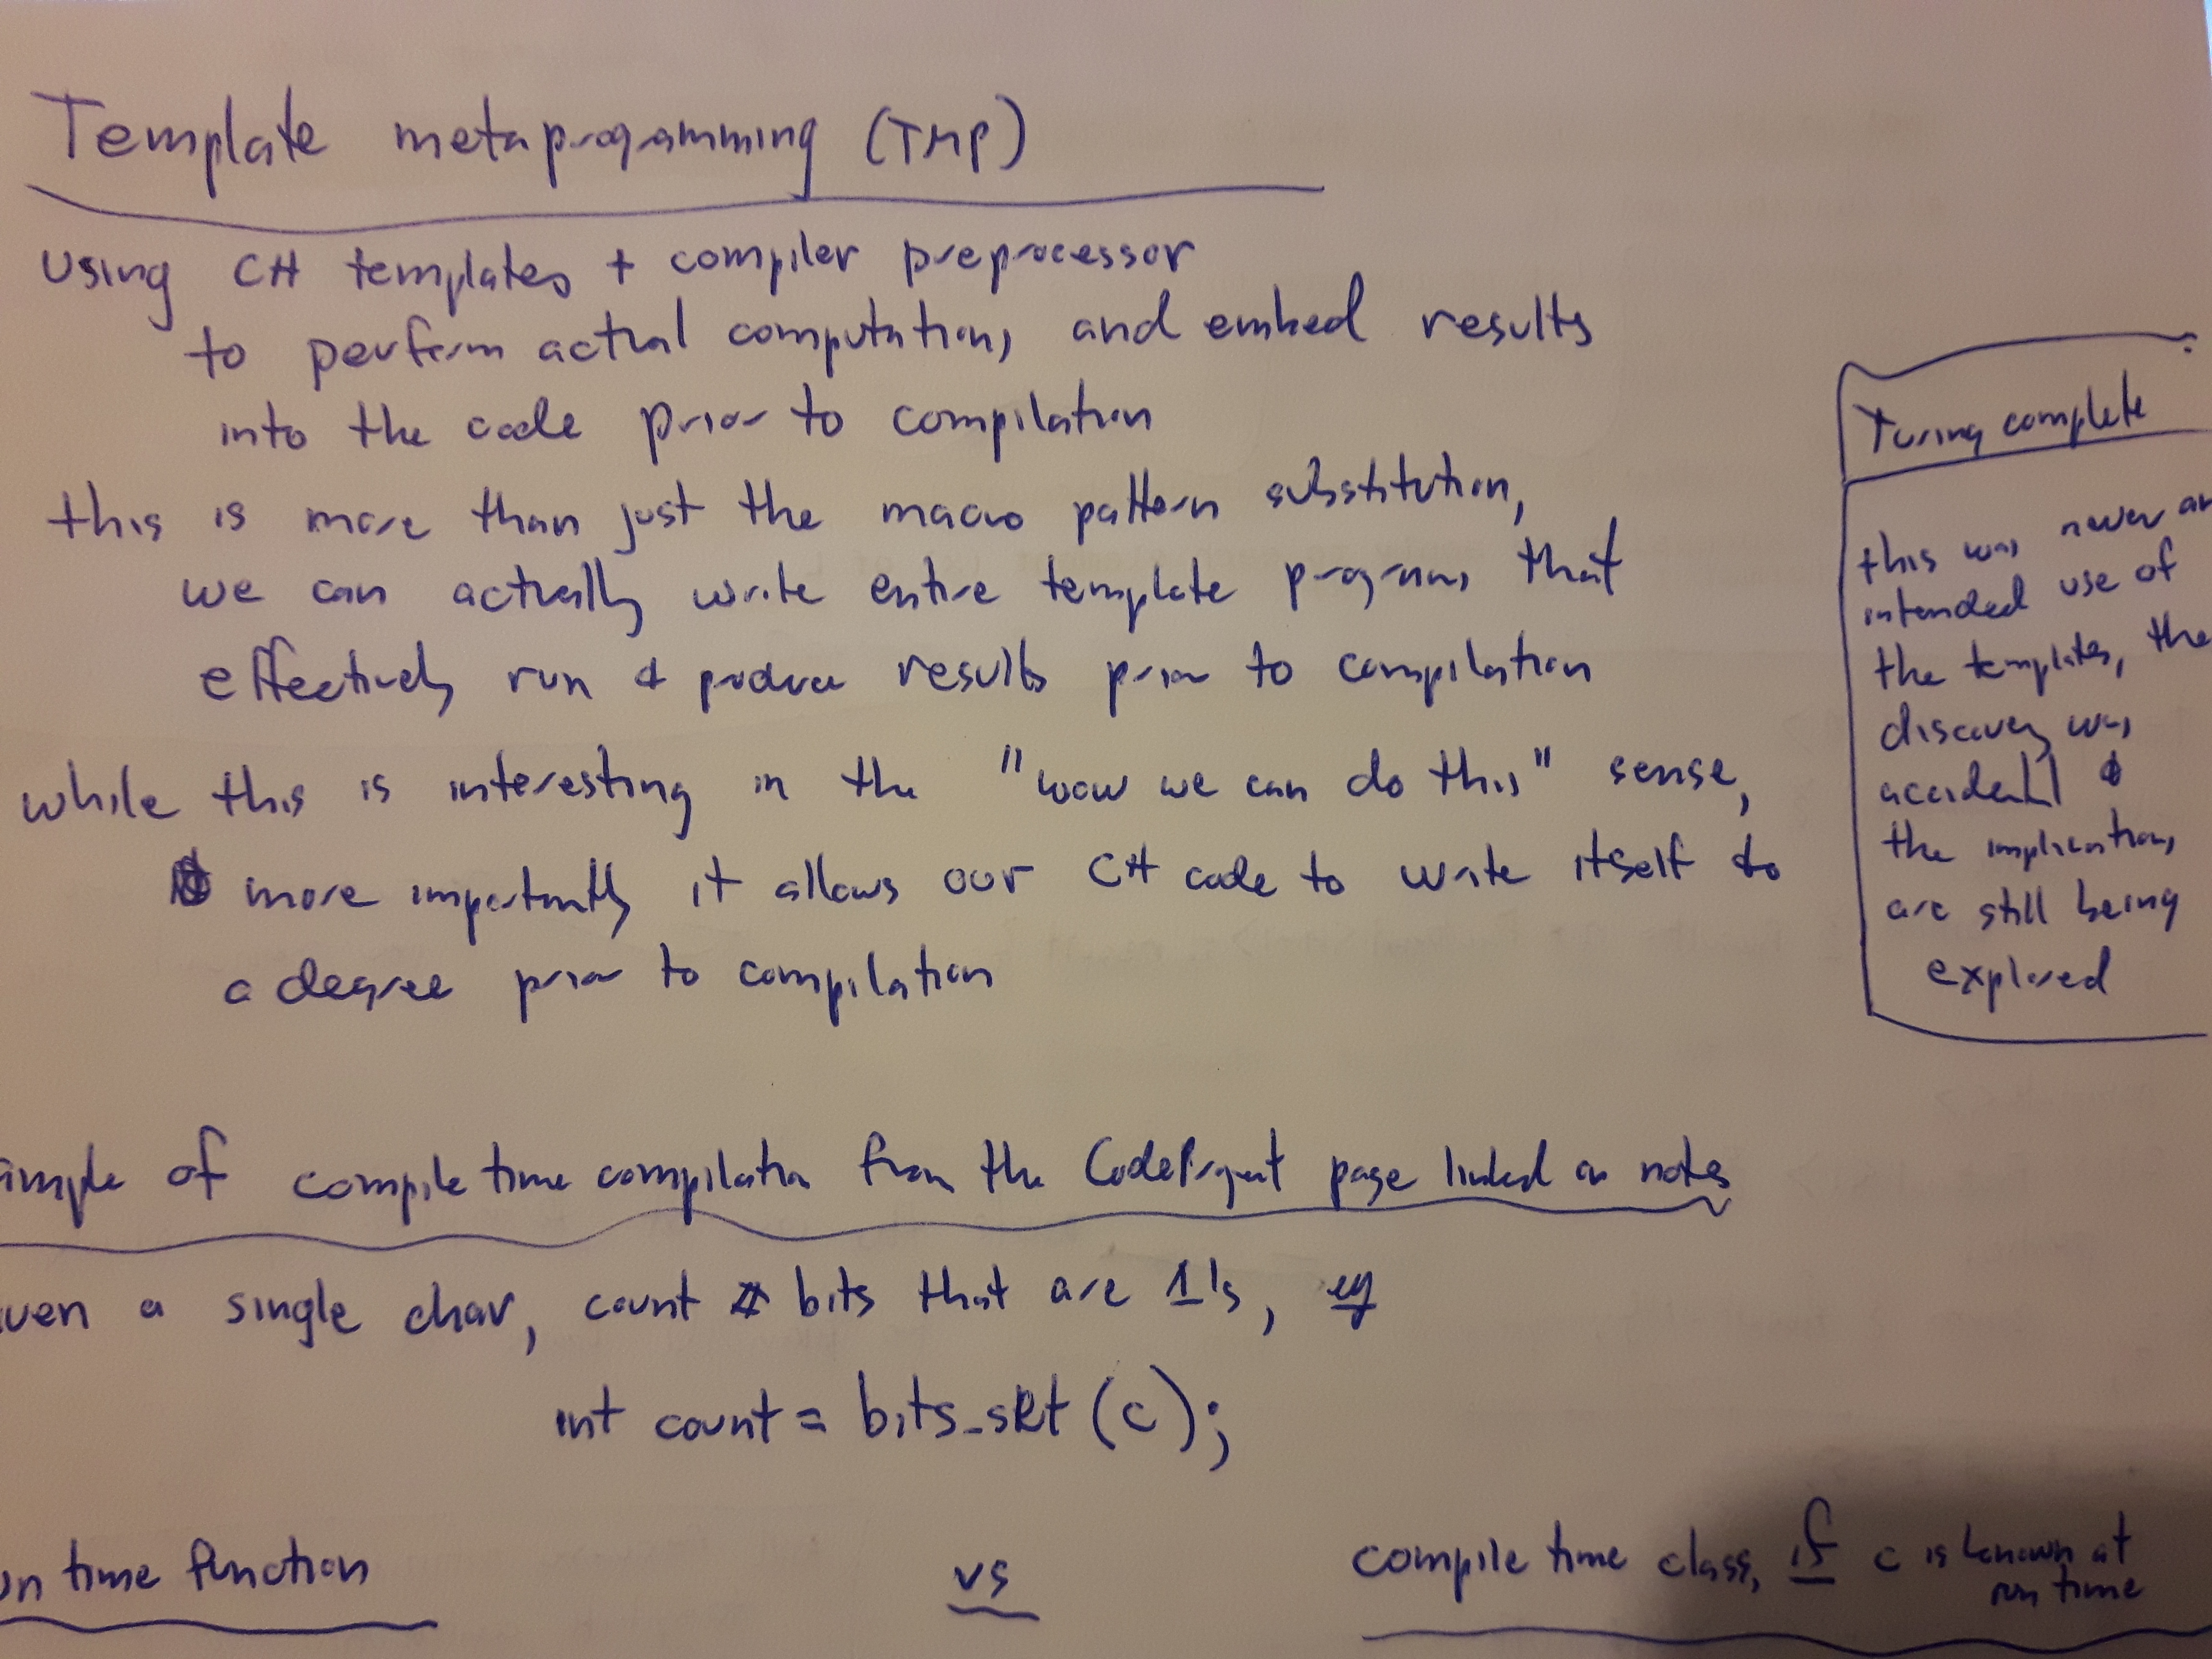 Template metaprogramming (TMP)
using C++ templates + compiler preprocessor
to perform actual computations, and embed results
into the code prior to compilation
this is more than just the macro pattern substitution,
we can actually write entire template programs that
effectively run & produce results prior to compilation
while this is interesting in the "wow we can do this" sense,
more importantly it allows our C++ code to write itself to
a degree prior to compilation
Turing complete
this was never an
intended use of
the templates, the
discovery was
accidental &
the implications
are still being
explored
ample of compile time compilation from the CodeProject page linked in notes
iven a single char, count # bits that are 1's, eg
int count = bits_set (c);
un time function
vs
compile time class, if c is known at
run time